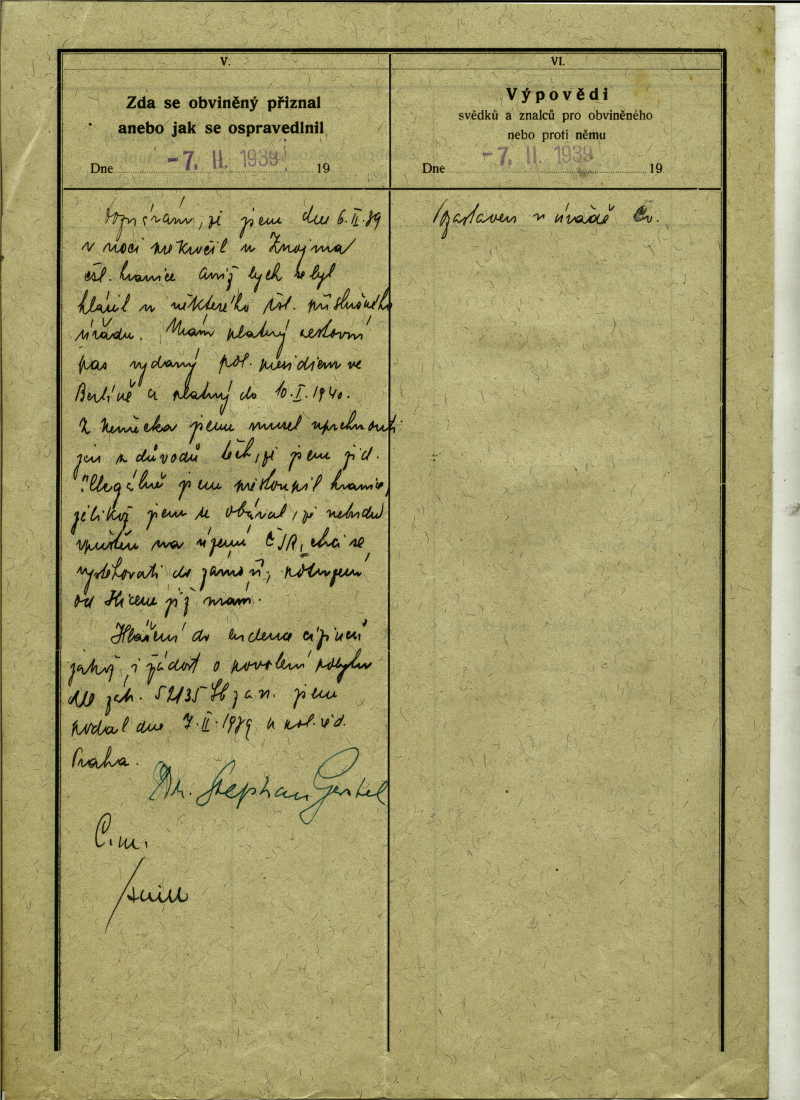 V.
Zda se obviněný přiznal
anebo jak se ospravedlnil
Dne -7. II. 1939 19
jsem dne 6.II.39
v noci překročil u Znojma
čsl. hranice aniž bych se byl
hlásil u některého čsl. příslušného
úřadu. Mám platný cestovní
pas vydaný pol. presidiem ve
Berlíně a platný do 10.I.1940.
Z Německa jsem musel uprchnouti
jen z důvodů těch, že jsem žid.
Illegálně jsem překročil hranice,
jelikož jsem se obával, že nebudu
vpuštěn na území ČSR, chci se
vystěhovati do zámoří,
od již mám.
Hlášení do evidence cizinců
jakož i žádost o povolení pobytu
dle zák. 52/35 Sb z a n. jsem
podal dne 7.II.1939 u pol. řed.
Praha.
Dr. Stephan Gerstel
C.m.
VI.
Výpovědi
svědků a znalců pro obviněného
nebo proti němu
Dne -7. II. 1939 19
v úřadě